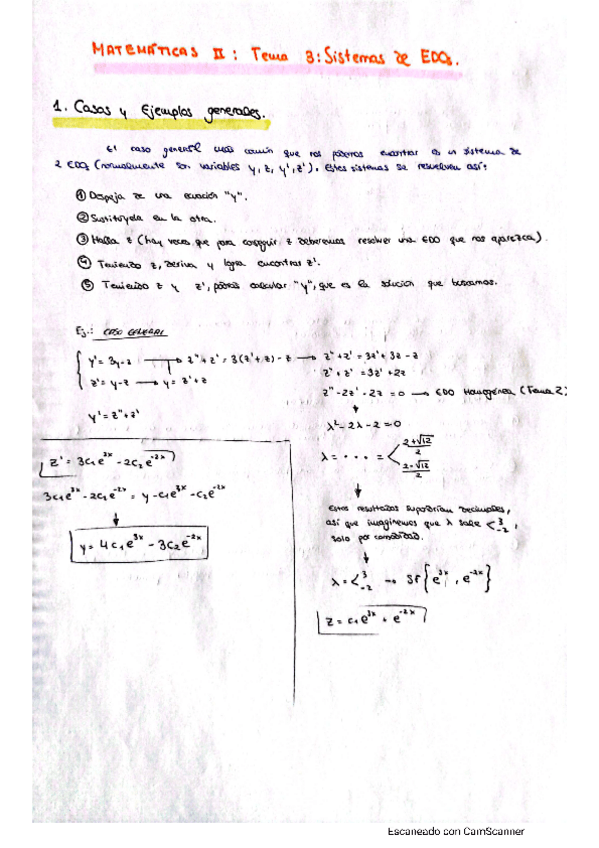 MATEMÁTICAS II: Tema 3: Sistemas de EDOs.
1. Casos y Ejemplos generales.
El caso general más común que nos podemos encontrar es un sistema de
2 EDOs (normalmente son variables y, z, y', z'). Estos sistemas se resuelven así:
① Despeja de una ecuación "y".
② Sustitúyela en la otra.
③ Halla z (hay veces que para conseguir z deberemos resolver una EDO que nos aparezca).
④ Teniendo z, deriva y logra encontrar z'.
⑤ Teniendo z y z', podrás calcular "y", que es la solución que buscamos.
Ej.: CASO GENERAL
{ y' = 3y - z → z'' + z' = 3(z' + z) - z → z'' + z' = 3z' + 3z - z
z' = y - z → y = z' + z
z'' + z' = 3z' + 2z
z'' - 2z' - 2z = 0 → EDO Homogénea (Tema 2)
y' = z'' + z'
λ² - 2λ - 2 = 0
λ = ... = < 2+√12/2
2-√12/2
Estos resultados supondrían decimales,
así que imaginemos que λ sale < 3 -2 ,
solo por comodidad.
λ = < 3 -2 → Sf { e^3x , e^-2x }
z = c₁e^3x + e^-2x
z' = 3c₁e^3x - 2c₂e^-2x
3c₁e^3x - 2c₂e^-2x = y - c₁e^3x - c₂e^-2x
y = 4c₁e^3x - 3c₂e^-2x
Escaneado con CamScanner